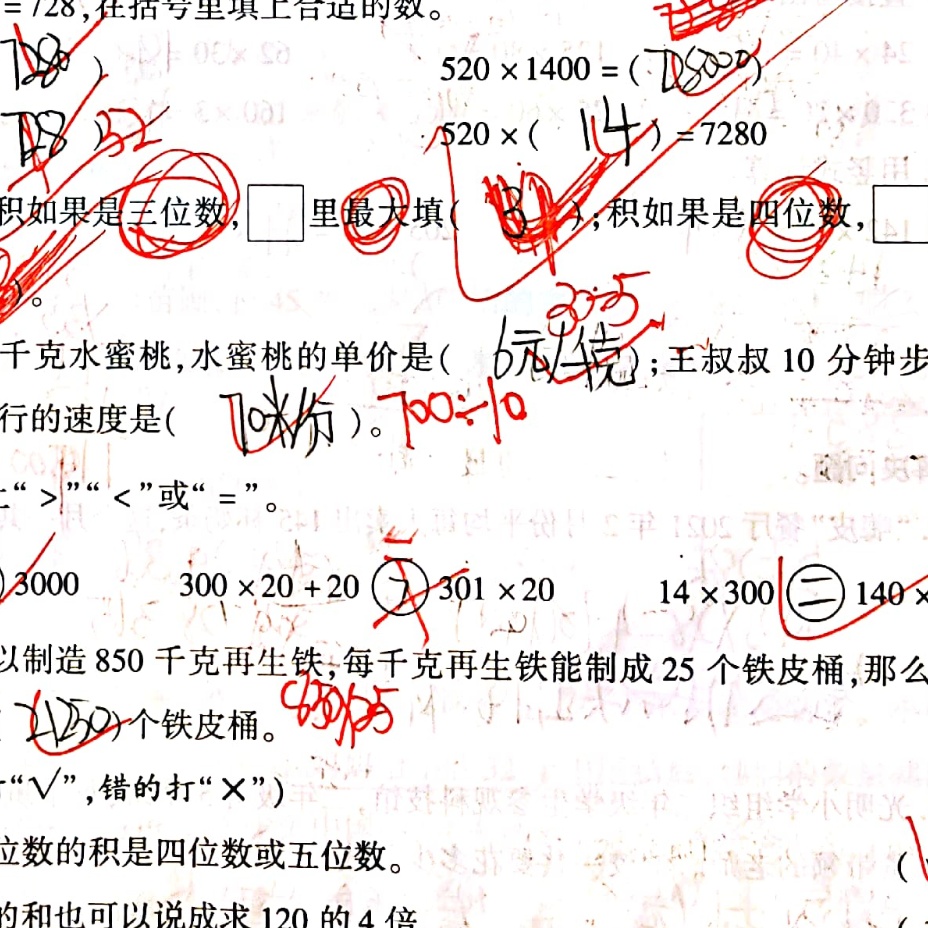 = 728,在括号里填上合适的数。
7280 ) 520 × 1400 = ( 728000 )
728 ) 52 520 × ( 14 ) = 7280
积如果是三位数, □ 里最大填( 3 );积如果是四位数, □
)。
30÷5
千克水蜜桃,水蜜桃的单价是( 6元/千克 );王叔叔 10 分钟步
行的速度是( 70米/分 )。 700÷10
上“ > ”“ < ”或“ = ”。
3000 300 × 20 + 20 301 × 20 14 × 300 = 140 ×
以制造 850 千克再生铁,每千克再生铁能制成 25 个铁皮桶,那么
( 21250 )个铁皮桶。 850×25
打“√”,错的打“×”)
位数的积是四位数或五位数。 (
的和也可以说成求 120 的 4 倍